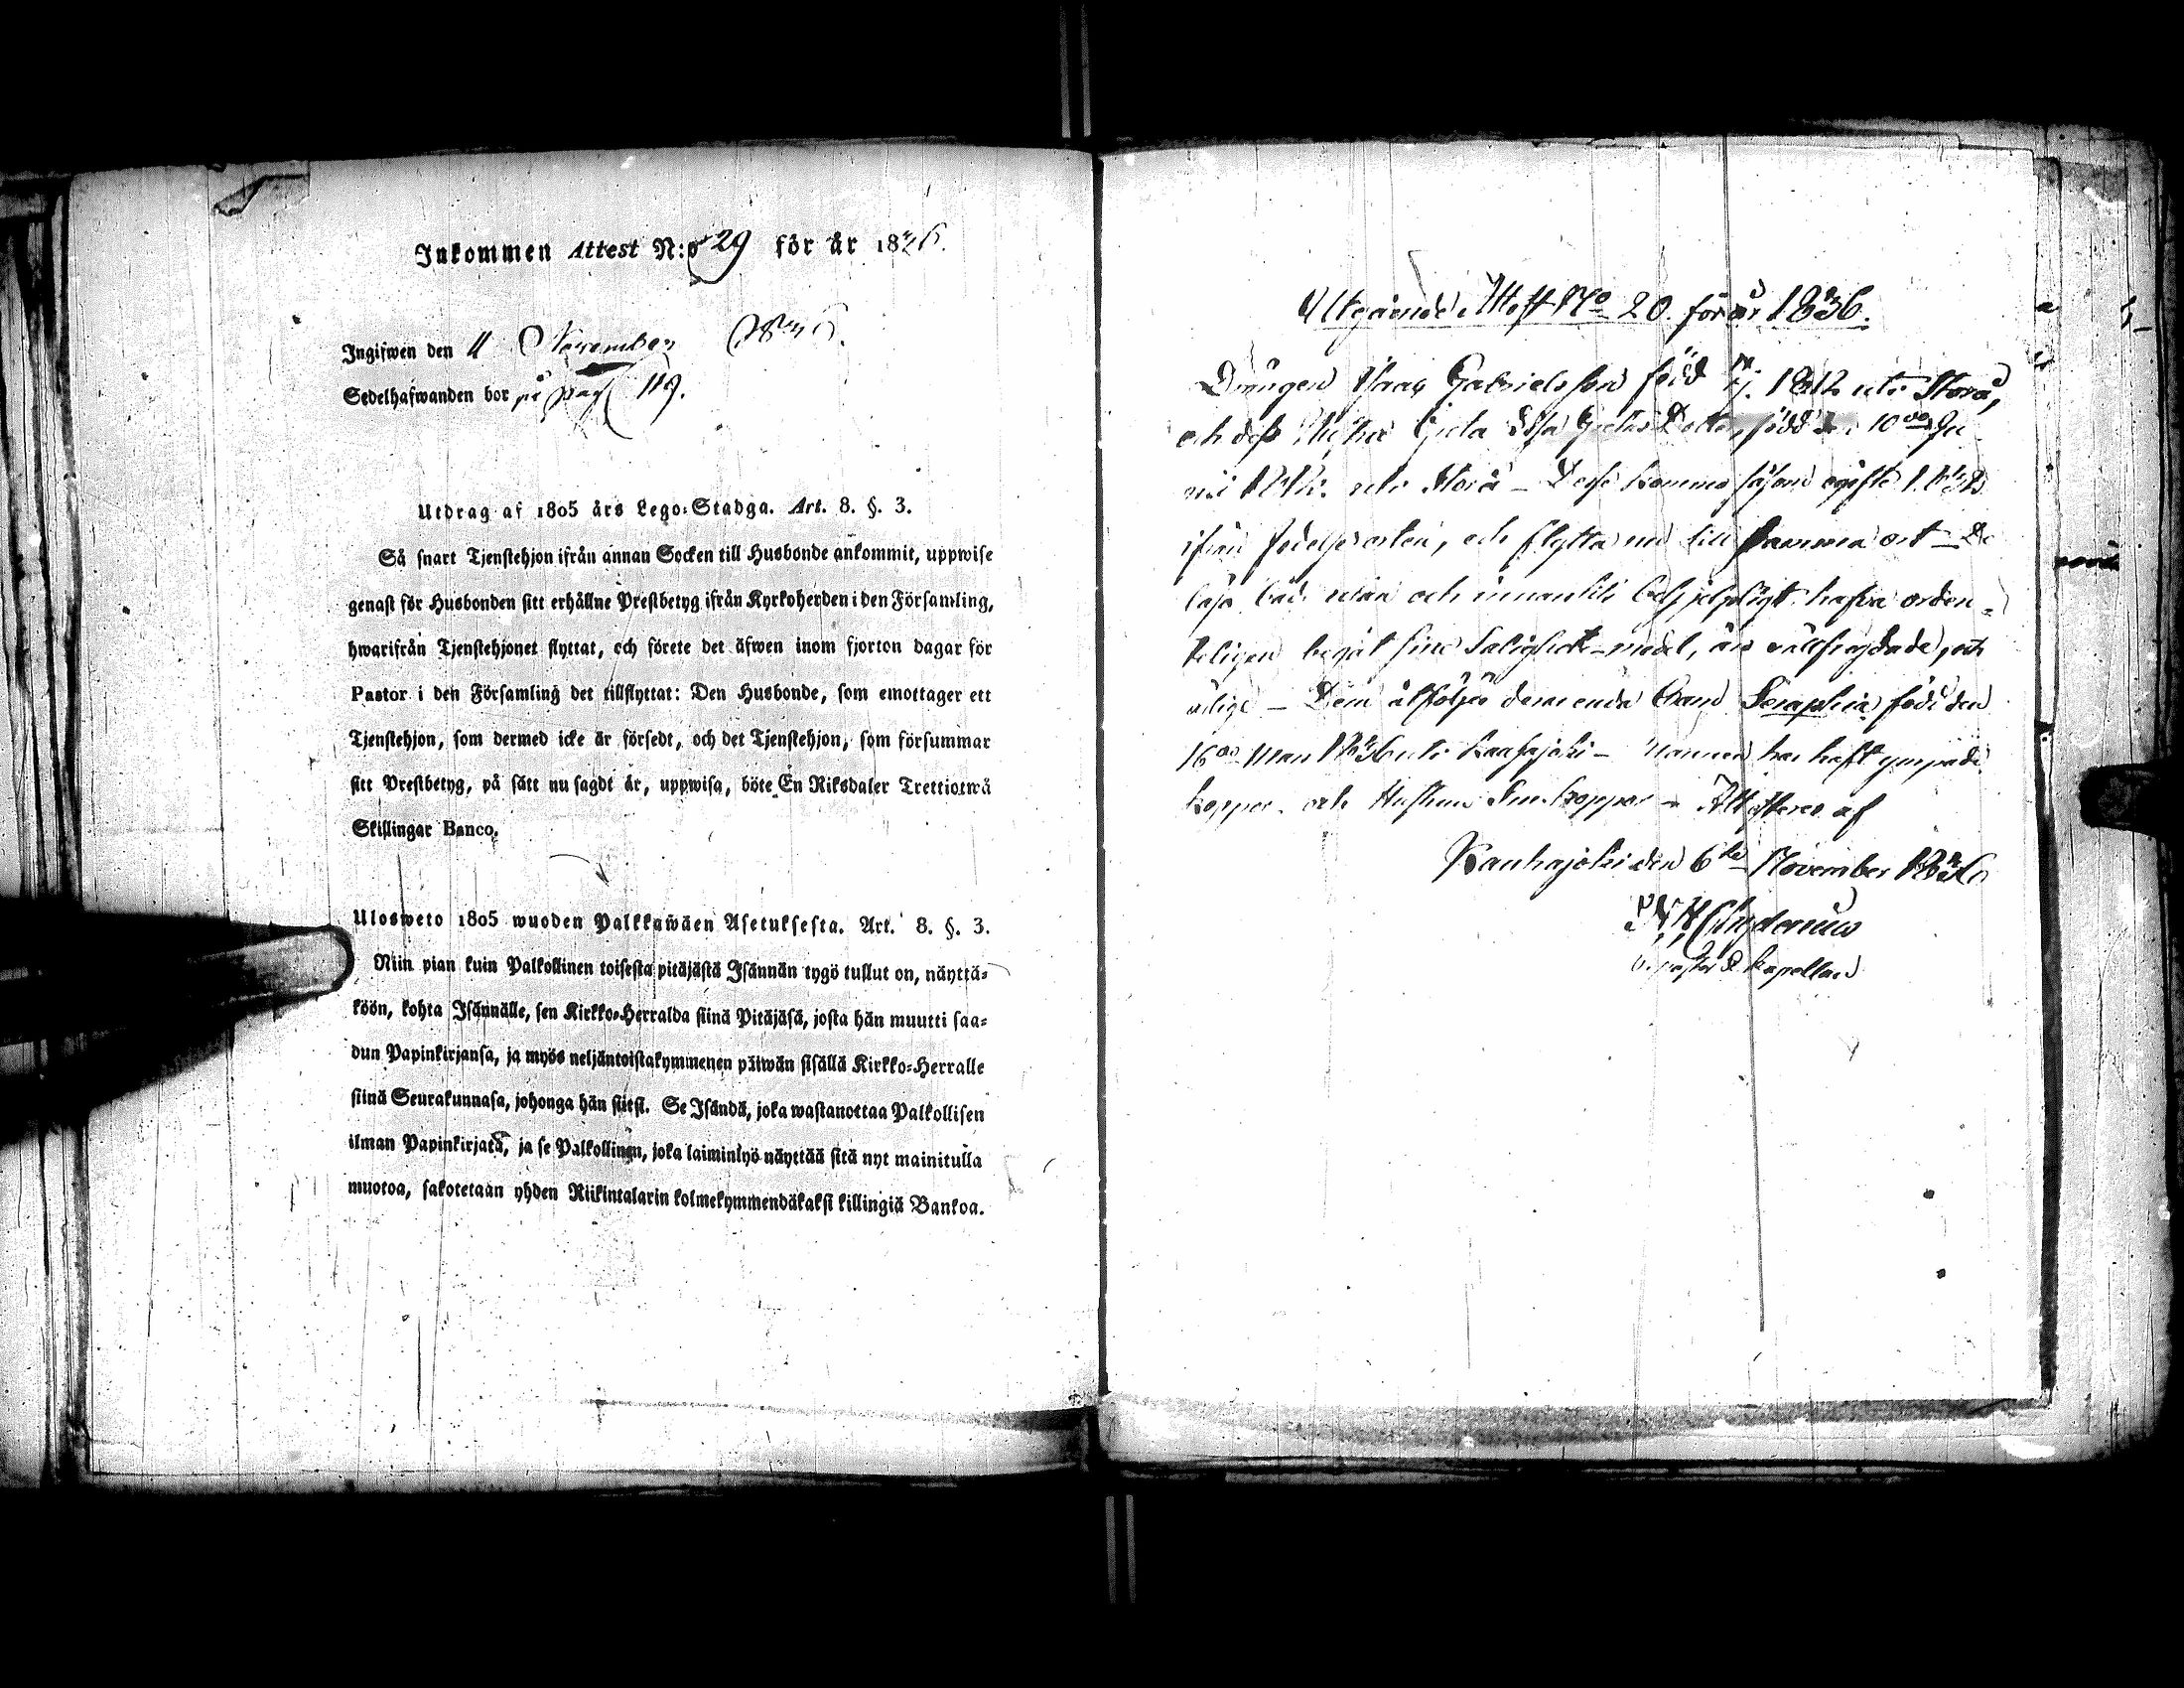 Inkommen Attest N:o 29 för år 1836.
Ingifwen den 11 November 1836.
Sedelhafwanden bor på pag 119.
Utdrag af 1805 års Lego-Stadga. Art. 8. §. 3.
Så snart Tjenstehjon ifrån annan Socken till Husbonde ankommit, uppwise
genast för Husbonden sitt erhållne Prestbetyg ifrån Kyrkoherden i den Församling,
hwarifrån Tjenstehjonet flyttat, och förete det äfwen inom fjorton dagar för
Pastor i den Församling det tillflyttat: Den Husbonde, som emottager ett
Tjenstehjon, som dermed icke är försedt, och det Tjenstehjon, som försummar
sitt Prestbetyg, på sätt nu sagdt är, uppwisa, böte En Riksdaler Trettiotwå
Skillingar Banco.
Ulosweto 1805 wuoden Palkkawäen Asetuksesta. Art. 8. §. 3.
Niin pian kuin Palkollinen toisesta pitäjästä Isännän tygö tullut on, näyttä-
köön, kohta Isännälle, sen Kirkko-Herralda siinä Pitäjäsä, josta hän muutti saa-
dun Papinkirjansa, ja myös neljäntoistakymmenen päiwän sisällä Kirkko-Herralle
siinä Seurakunnasa, johonga hän siirsi. Se Isändä, joka wastanottaa Palkollisen
ilman Papinkirjatä, ja se Palkollinen, joka laiminlyö näyttää sitä nyt mainitulla
muotoa, sakotetaan yhden Riikintalarin kolmekymmendäkaksi killingiä Bankoa.
Utgående Attest No 20. för år 1836.
Drängen Isaac Gabrielsson född 1812 uti Storå,
och dess Hustru Greta Lisa dotter, född den 10de Ju-
nii 1812. uti Storå - Desse kommo såsom ogifte
ifrån födelseorten, och flytta nu till samma ort - De
läsa både utan och innantill behjelpligt, hafva orden-
teligen begåt sine Salighets-medel, äro välfrägdade, och
ledige - Dem åtföljer deras enda Barn Seraphia född den
16de Mars 1836 uti Kauhajoki - Mannen har haft ympade
koppor och Hustrun koppor - Attesteras af
Kauhajoki den 6te November 1836
Chydenius
V. pastor & kapellan